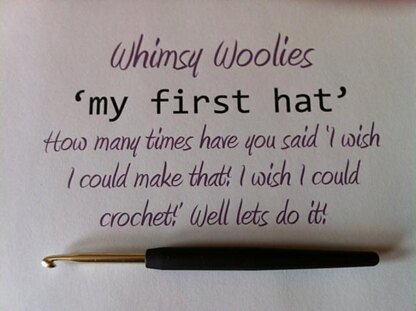 Whimsy Woolies
‘my first hat’
How many times have you said 'I wish
I could make that! I wish I could
crochet!' Well lets do it!